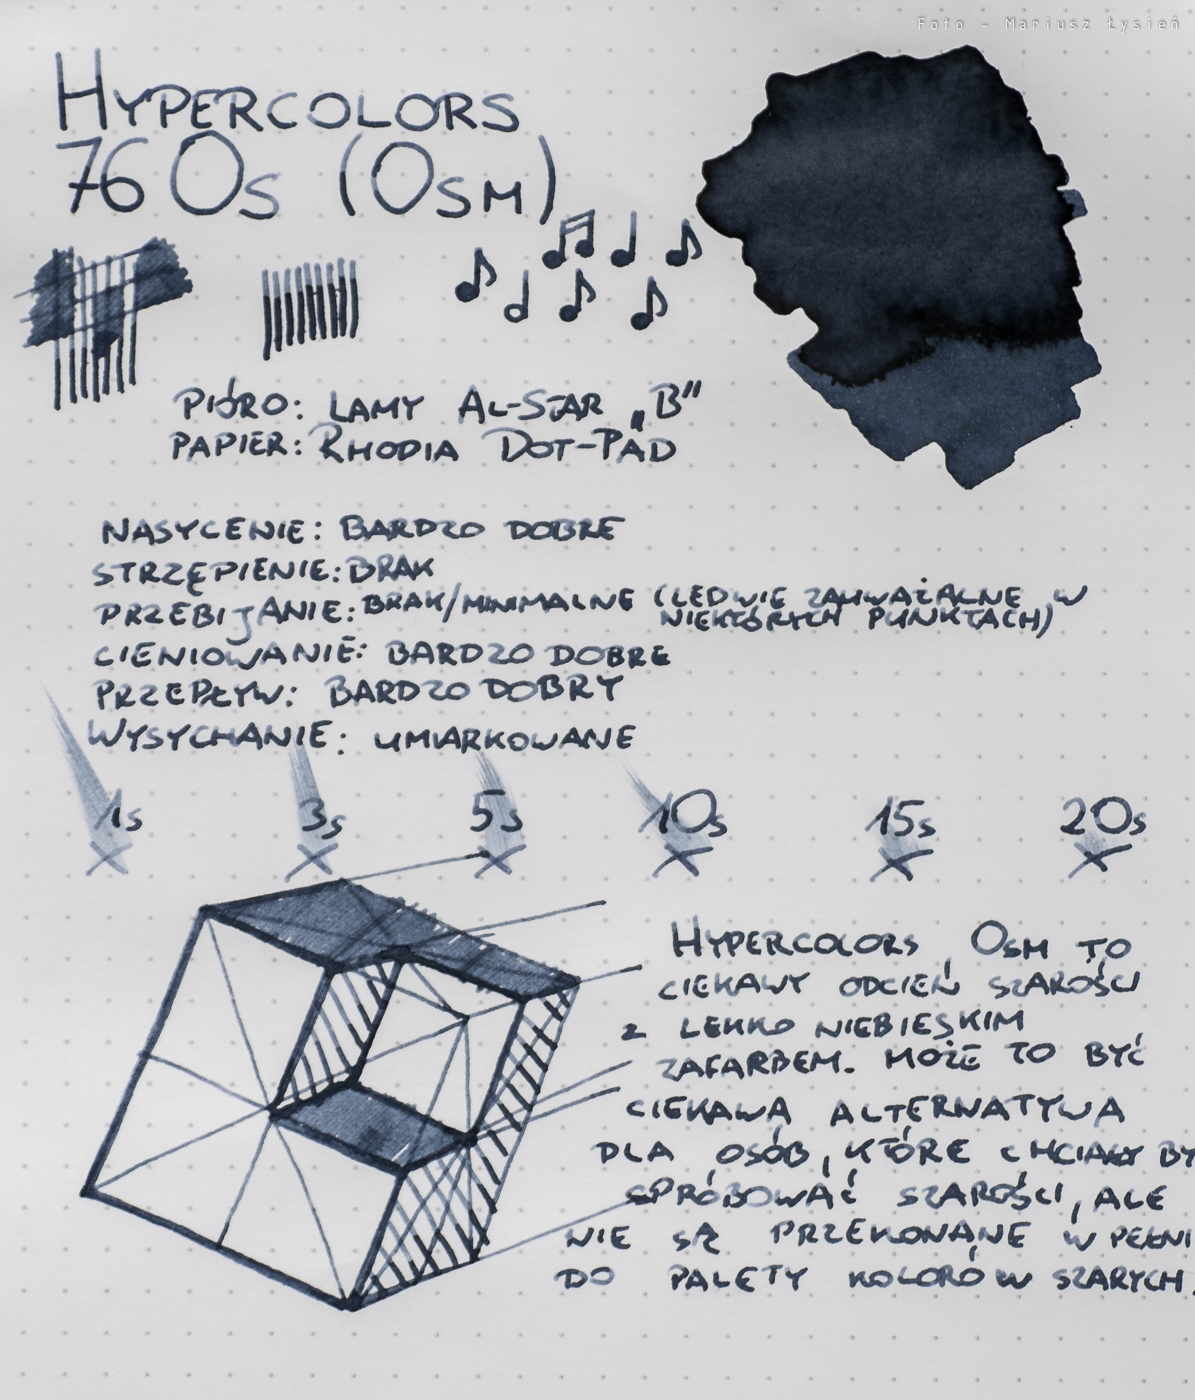 Foto - Mariusz Łysień
HYPERCOLORS
76 Os (OSM)
PIÓRO: LAMY AL-STAR „B”
PAPIER: RHODIA DOT-PAD
NASYCENIE: BARDZO DOBRE
STRZĘPIENIE: BRAK
PRZEBIJANIE: BRAK/MINIMALNE (LEDWIE ZAUWAŻALNE W
NIEKTÓRYCH PUNKTACH)
CIENIOWANIE: BARDZO DOBRE
PRZEPŁYW: BARDZO DOBRY
WYSYCHANIE: UMIARKOWANE
1s 3s 5s 10s 15s 20s
HYPERCOLORS OSM TO
CIEKAWY ODCIEŃ SZAROŚCI
Z LEKKO NIEBIESKIM
ZAFARBEM. MOŻE TO BYĆ
CIEKAWA ALTERNATYWA
DLA OSÓB, KTÓRE CHCIAŁY BY
SPRÓBOWAĆ SZAROŚCI, ALE
NIE SĄ PRZEKONANE W PEŁNI
DO PALETY KOLORÓW SZARYCH.